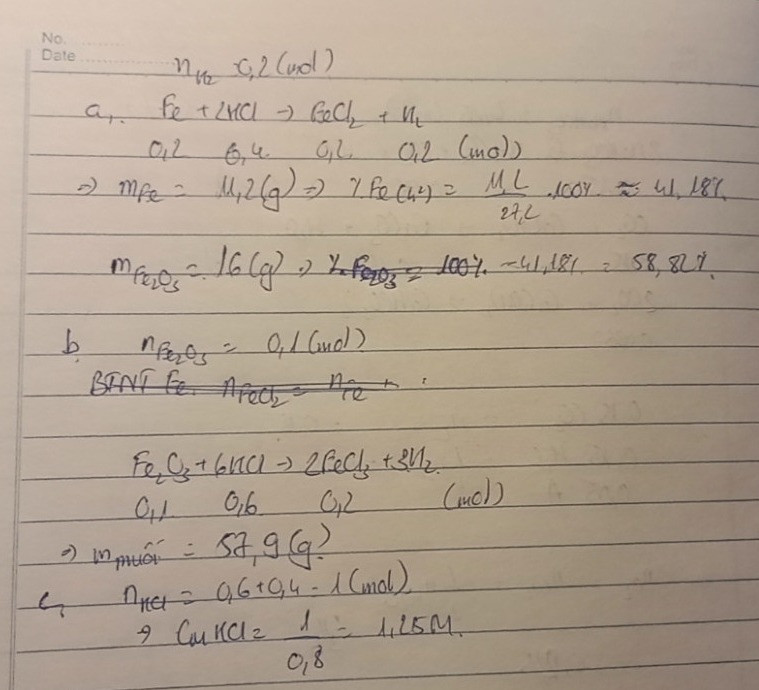 No.
Date
n_H₂ = 0,2 (mol)
a, Fe + 2HCl → FeCl₂ + H₂
0,2 0,4 0,2 0,2 (mol)
⇒ m_Fe = 11,2 (g) ⇒ % Fe (hh) = 11,2/27,2 .100% ≈ 41,18%
m_Fe₂O₃ = 16 (g) ⇒ % Fe₂O₃ = 100% - 41,18% = 58,82%.
b, n_Fe₂O₃ = 0,1 (mol)
BTNT Fe: n_FeCl₂ = n_Fe +
Fe₂O₃ + 6HCl → 2FeCl₃ + 3H₂
0,1 0,6 0,2 (mol)
⇒ m_muối = 57,9 (g)
c, n_HCl = 0,6 + 0,4 = 1 (mol)
⇒ C_M HCl = 1/0,8 = 1,25M.